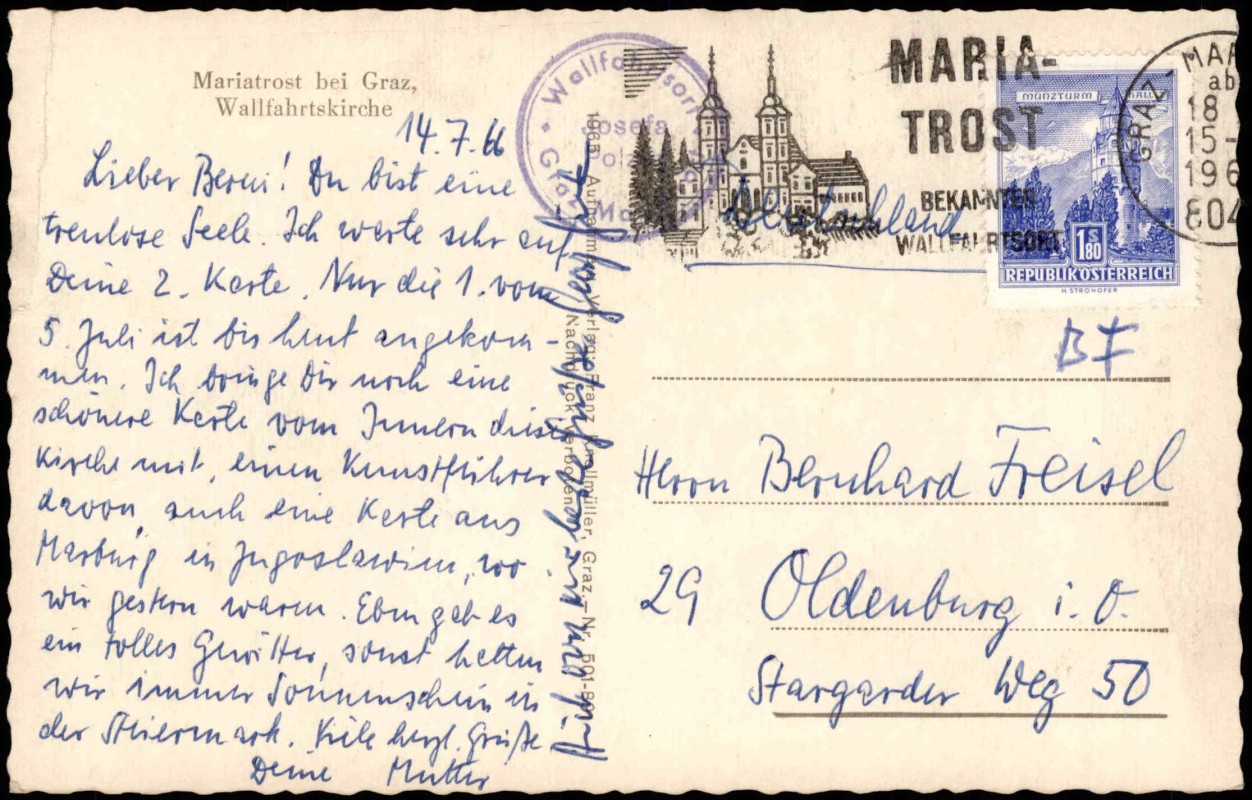 Mariatrost bei Graz,
Wallfahrtskirche
14.7.66
Lieber Berni! Du bist eine
treulose Seele. Ich warte sehr auf
Deine 2. Karte. Nur die 1. vom
5. Juli ist bis heut angekom-
men. Ich bringe Dir noch eine
schönere Karte vom Innern dieser
Kirche mit, einen Kunstführer
davon, auch eine Karte aus
Marburg in Jugoslawien, wo
wir gestern waren. Eben gab es
ein tolles Gewitter, sonst hatten
wir immer Sonnenschein in
der Steiermark. Viele herzl. Grüße
Deine Mutter
Auch von mir herzl. Grüße
1965 Verlag Franz Knollmüller, Graz – Nr. 501-8
Nachdruck verboten
Wallfahrtsort
Josefa
Graz
MARIA-
TROST
BEKANNTER
WALLFAHRTSORT
GRAZ - MAR
18
15-
196
804
MÜNZTURM HALL
1S80
REPUBLIK ÖSTERREICH
H. STROHOFER
Deutschland
BF
Herrn Bernhard Freisel
29 Oldenburg i. O.
Stargarder Weg 50